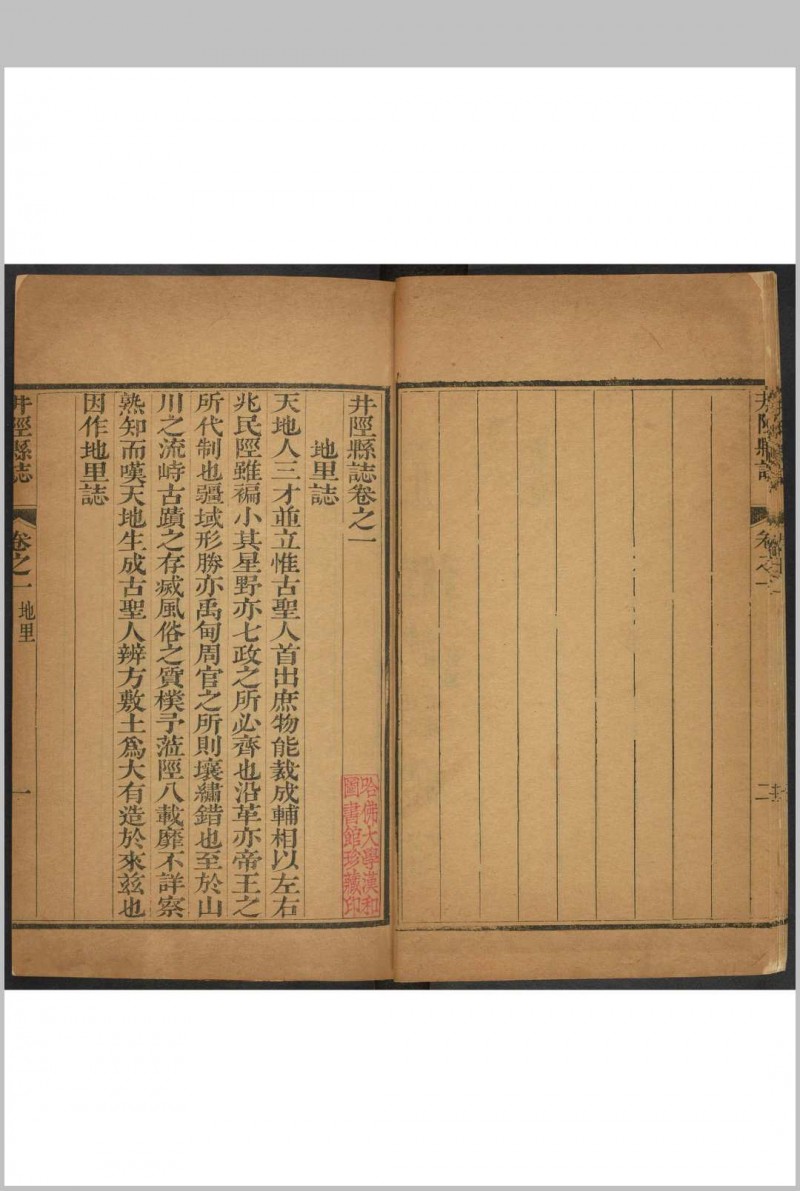 井陘縣誌卷之一
地里誌
天地人三才並立惟古聖人首出庶物能裁成輔相以左右
兆民陘雖褊小其星野亦七政之所必齊也沿革亦帝王之
所代制也疆域形勝亦禹甸周官之所則壤繡錯也至於山
川之流峙古蹟之存滅風俗之質樸予蒞陘八載靡不詳察
熟知而嘆天地生成古聖人辨方敷土爲大有造於來玆也
因作地里誌
井陘縣誌
卷之一
地里
一
哈佛大學漢和
圖書館珍藏印